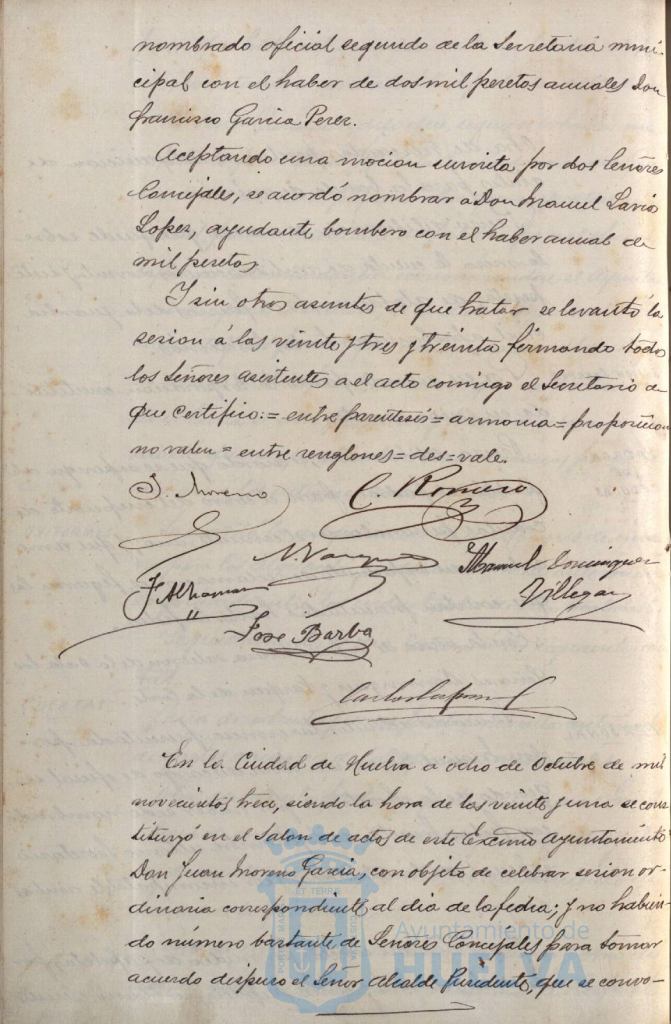 nombrado oficial segundo de la Secretaria muni-
cipal con el haber de dos mil pesetas anuales Don
Francisco Garcia Perez.
Aceptando una mocion suscrita por dos Señores
Concejales, se acordó nombrar á Don Manuel
Lopez, ayudante bombero con el haber anual de
mil pesetas
Y sin otros asuntos de que tratar se levantó la
sesion á las veinte y tres y treinta firmando todos
los Señores asistentes a el acto conmigo el Secretario de
que certifico:= entre parentesis = armonia = proposicion
no valen = entre renglones = des = vale.
J. Moreno
C. Romero
Manuel Dominguez
F. Alhaman
Villegas
Jose Barba
En la Ciudad de Huelva á ocho de Octubre de mil
novecientos trece, siendo la hora de las veinte y una se cons
tituyó en el Salon de actos de este Excmo Ayuntamiento
Don Juan Moreno Garcia, con objeto de celebrar sesion or-
dinaria correspondiente al dia de la fecha; y no habien-
do número bastante de Señores Concejales para tomar
acuerdo dispuso el Señor Alcalde Presidente, que se convo-
Ayuntamiento de
HUELVA